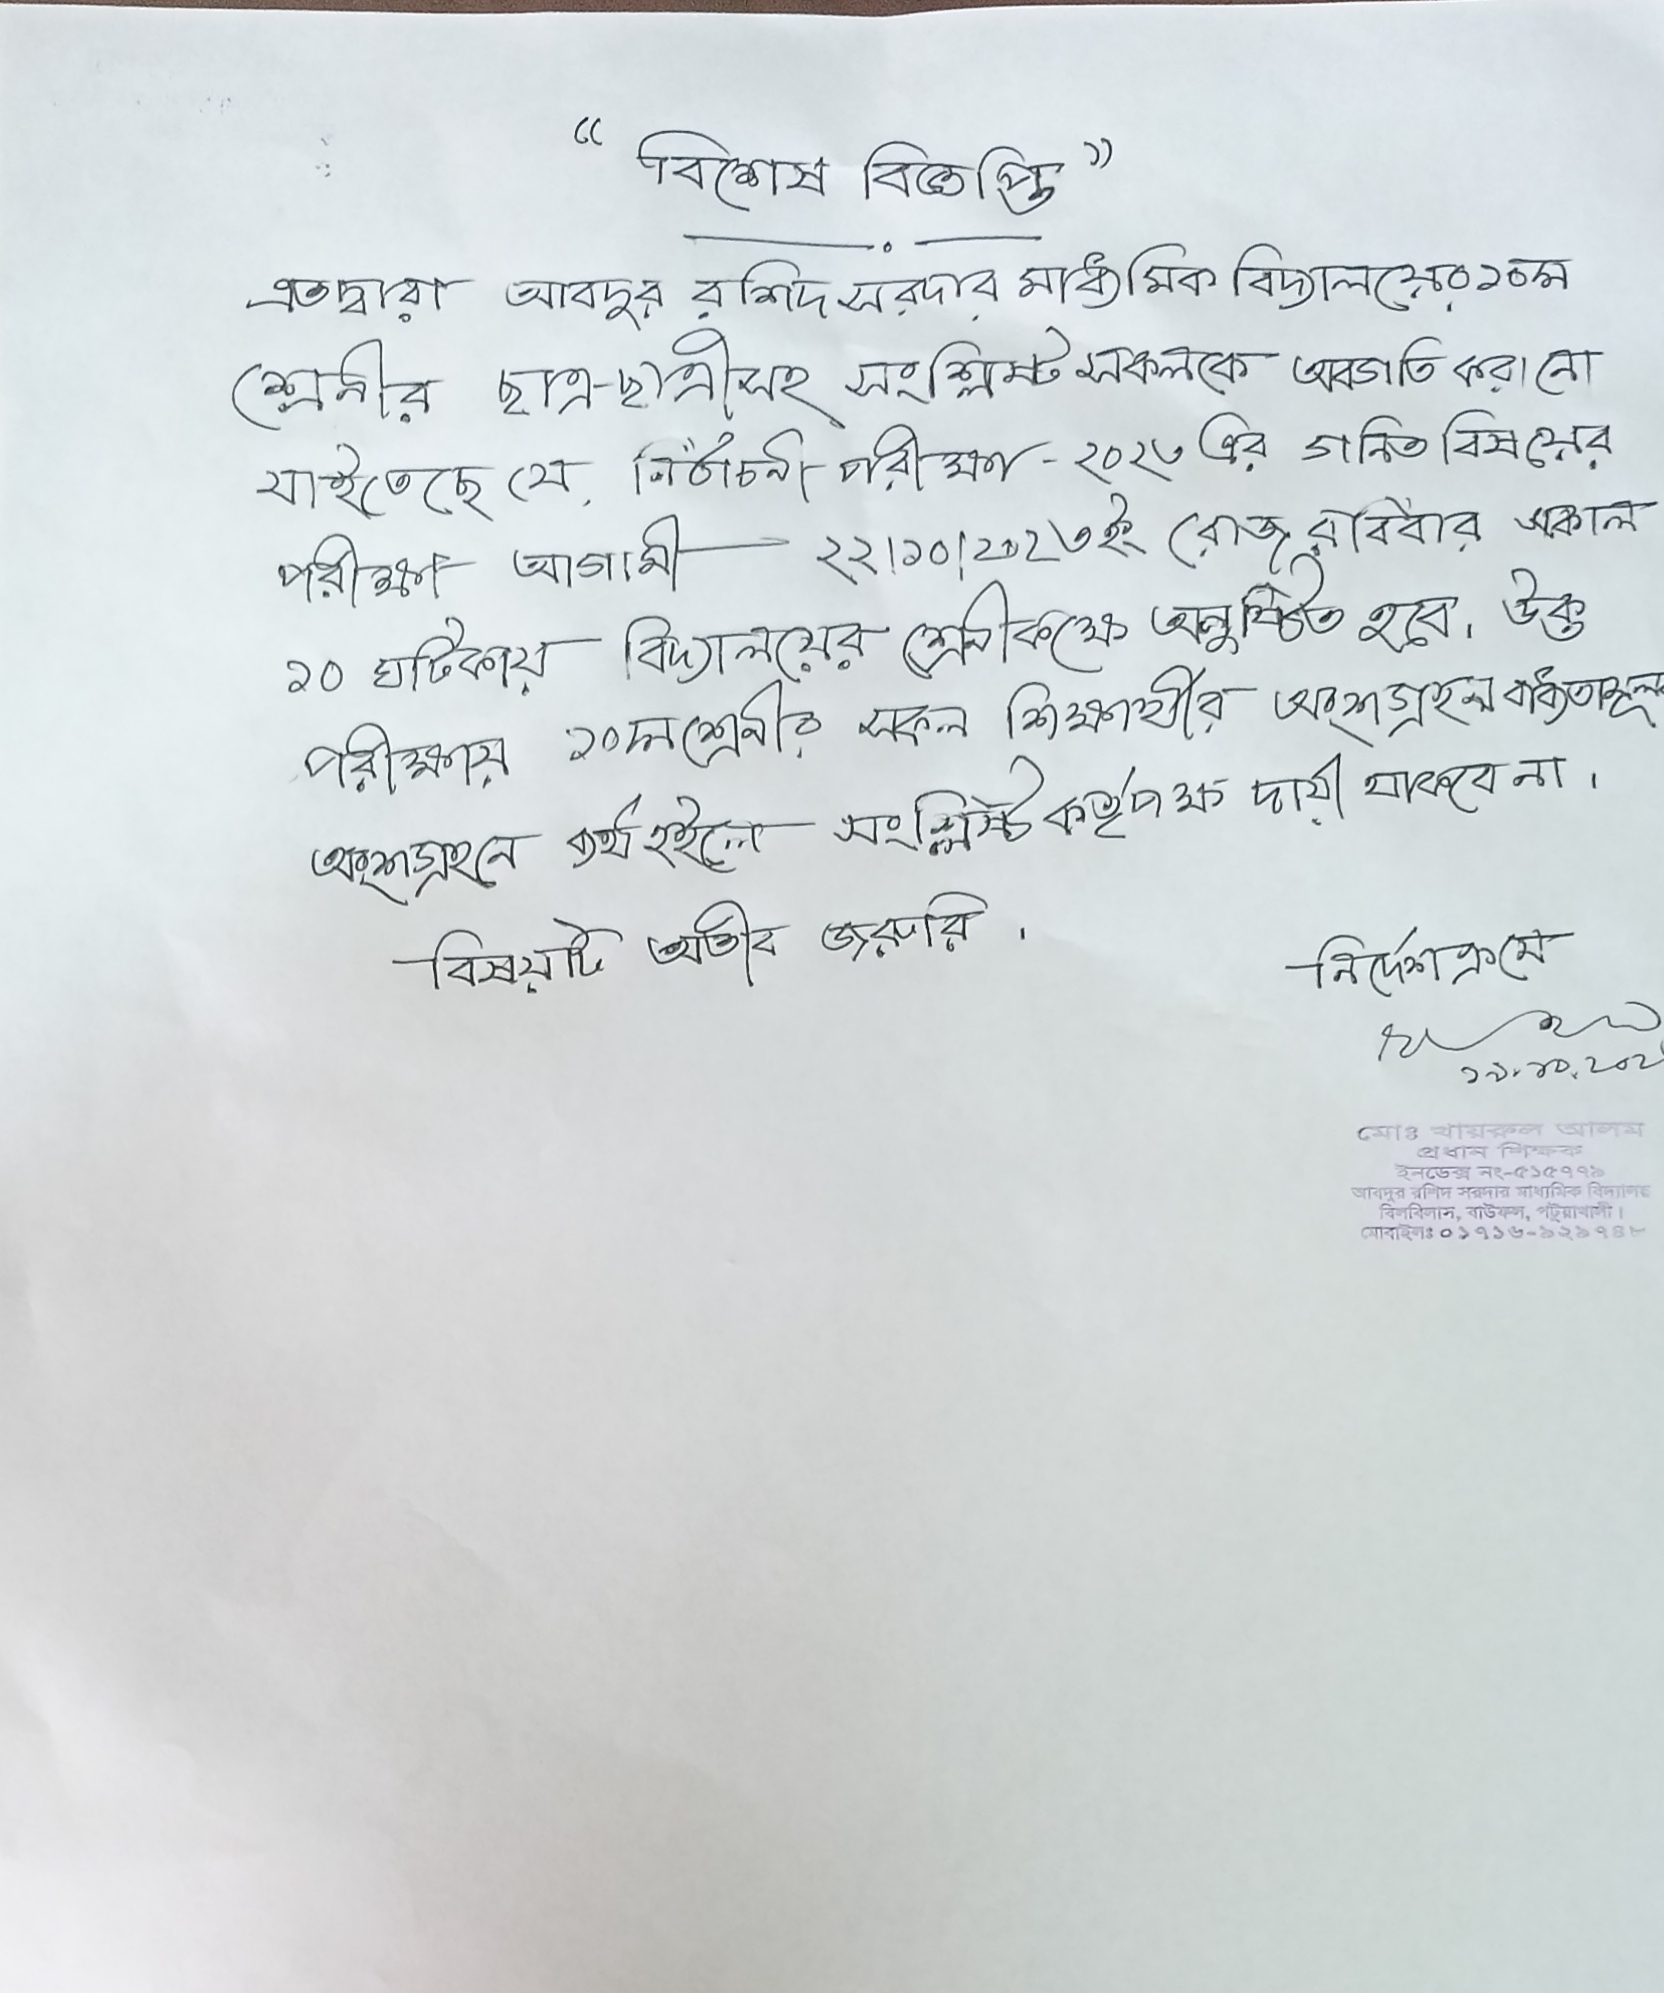 “বিশেষ বিজ্ঞপ্তি”
এতদ্বারা আবদুর রশিদ সরদার মাধ্যমিক বিদ্যালয়ের ১০ম
শ্রেনীর ছাত্র-ছাত্রীসহ সংশ্লিষ্ট সকলকে অবগতি করানো
যাইতেছে যে, নির্বাচনী পরীক্ষা - ২০২৩ এর গনিত বিষয়ের
পরীক্ষা আগামী ২২/১০/২০২৩ইং রোজ রবিবার সকাল
১০ ঘটিকায় বিদ্যালয়ের শ্রেনীকক্ষে অনুষ্ঠিত হবে। উক্ত
পরীক্ষায় ১০ম শ্রেনীর সকল শিক্ষার্থীর অংশগ্রহন বাধ্যতামূল
অংশগ্রহনে ব্যর্থ হইলে সংশ্লিষ্ট কর্তৃপক্ষ দায়ী থাকবে না।
বিষয়টি অতীব জরুরি।
নির্দেশক্রমে
১৯.১০.২০২
মোঃ খায়রুল আলম
প্রধান শিক্ষক
ইনডেক্স নং-৫১৫৭৭৯
আবদুর রশিদ সরদার মাধ্যমিক বিদ্যালয়
বিলবিলাস, বাউফল, পটুয়াখালী।
মোবাইলঃ ০১৭১৬-৯২৯৭৪৮